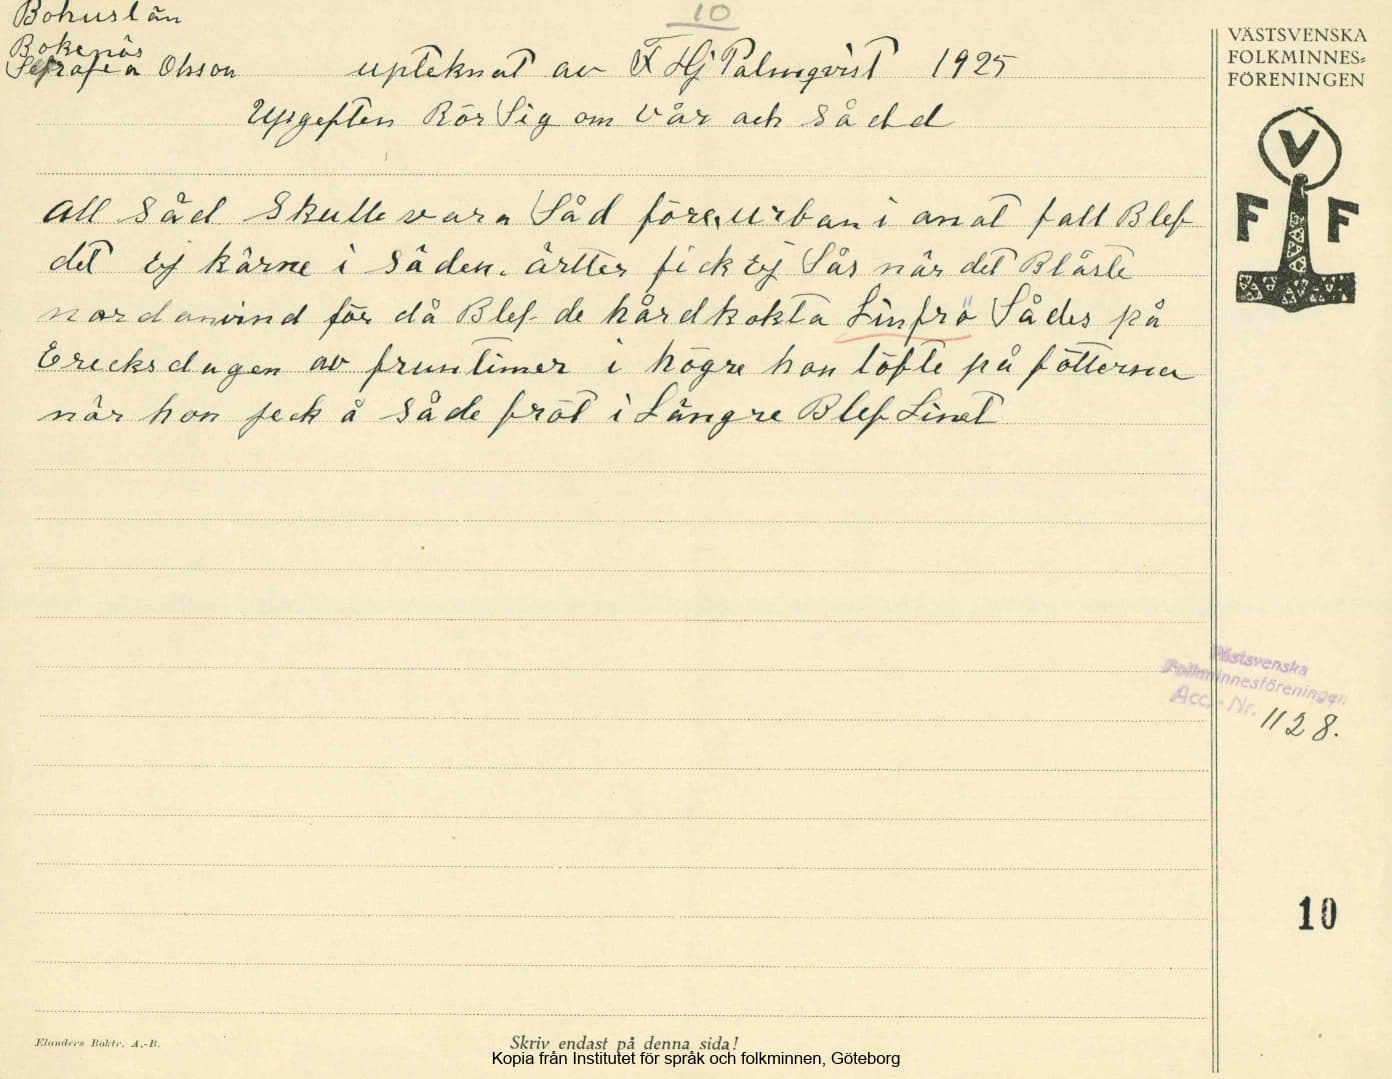 Bohuslän
10
Bokenäs
Serafia Olsson upteknat av F Hj Palmqvist 1925
Upgeften Rör Sig om Vår ach Sådd
VÄSTSVENSKA
FOLKMINNES=
FÖRENINGEN
V
F F
All Såd Skulle vara Såd före Urban i anat fall Blef
det Ej kärne i Säden. ärtter fick Ej Sås när det Blåste
nordanvind för då Blef de hårdkokta Linfrö Sådes på
Ereksdagen av fruntimer i högre hon löfte på fötterna
när hon jeck å Såde fröt i Längre Blef Linet
Västsvenska
Folkminnesföreningen
Acc.-Nr. 1128.
10
Elanders Boktr. A.-B.
Skriv endast på denna sida!
Kopia från Institutet för språk och folkminnen, Göteborg